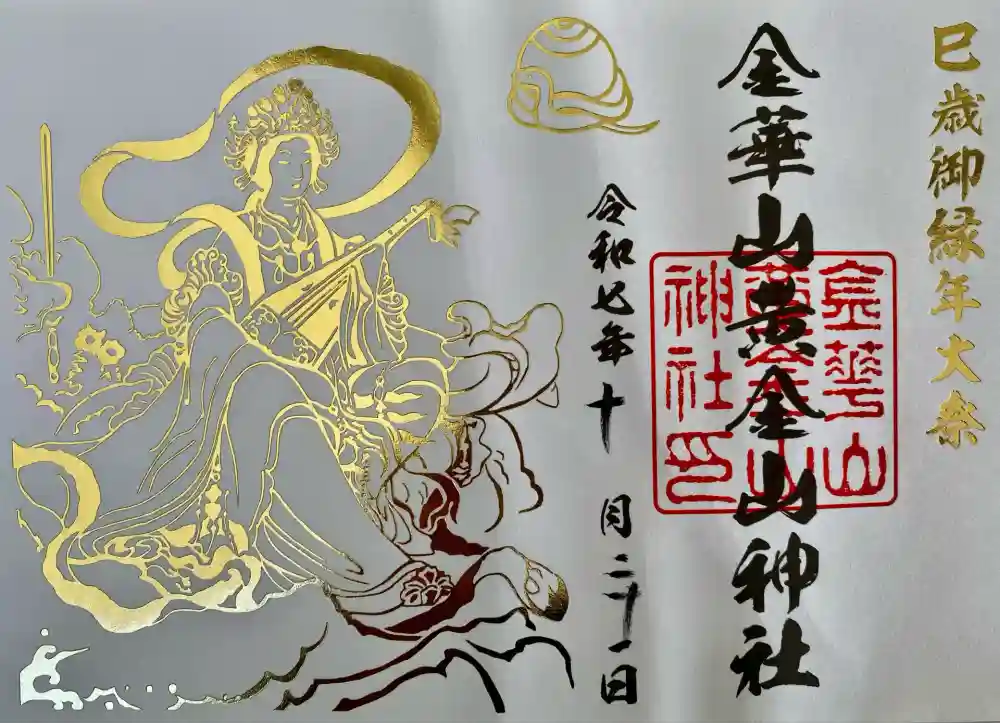 巳歳御縁年大祭
金華山黄金山神社
金華山
黄金山
神社印
令和七年十月二十一日